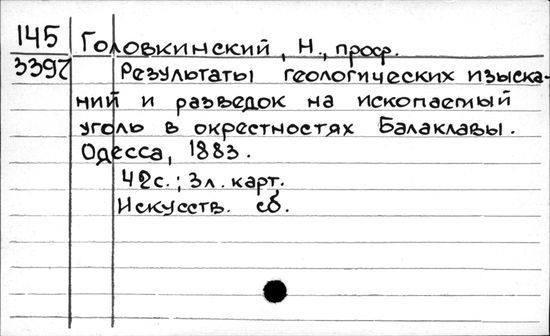 145 Головкинский, Н., проф.
3392 Результаты геологических изыска-
ний и разведок на ископаемый
уголь в окрестностях Балаклавы.
Одесса, 1883.
42с.; 3л. карт.
Искусств. сб.